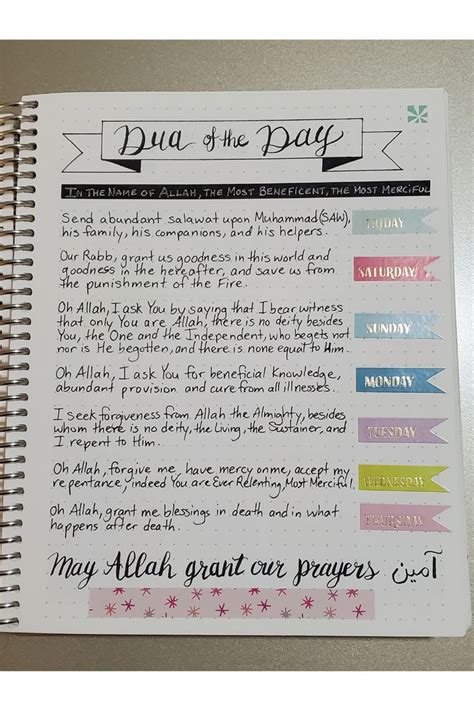 Dua of the Day
IN THE NAME OF ALLAH, THE MOST BENEFICENT, THE MOST MERCIFUL
Send abundant salawat upon Muhammad (SAW),
his family, his companions, and his helpers.
FRIDAY
Our Rabb, grant us goodness in this world and
goodness in the hereafter, and save us from
the punishment of the Fire.
SATURDAY
Oh Allah, I ask You by saying that I bear witness
that only You are Allah, there is no deity besides
You, the One and the Independent, who begets not
nor is He begotten, and there is none equal to Him.
SUNDAY
Oh Allah, I ask You for beneficial knowledge,
abundant provision and cure from all illnesses.
MONDAY
I seek forgiveness from Allah the Almighty, besides
whom there is no deity, the Living, the Sustainer, and
I repent to Him.
TUESDAY
Oh Allah, forgive me, have mercy on me, accept my
repentance, indeed You are Ever Relenting, Most Merciful.
WEDNESDAY
Oh Allah, grant me blessings in death and in what
happens after death.
THURSDAY
May Allah grant our prayers آمين